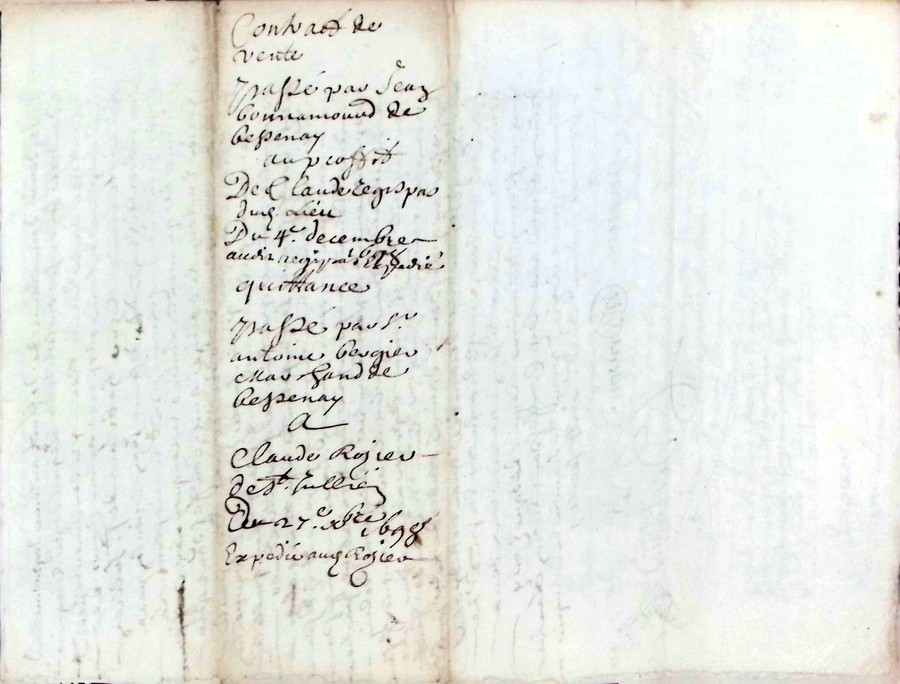 Contract de
vente
passé par Jean
bonnamourd de
bessenay
au proffit
De Claude regis par
dud. Lieu
Du 4e. decembre
audit regis
quittance
passé par Sr.
antoine bergier
Marchand de
bessenay
A
Claude Rozier
de St. Jullien
Du 27e. xbre 1698
Expedié aud Rozier